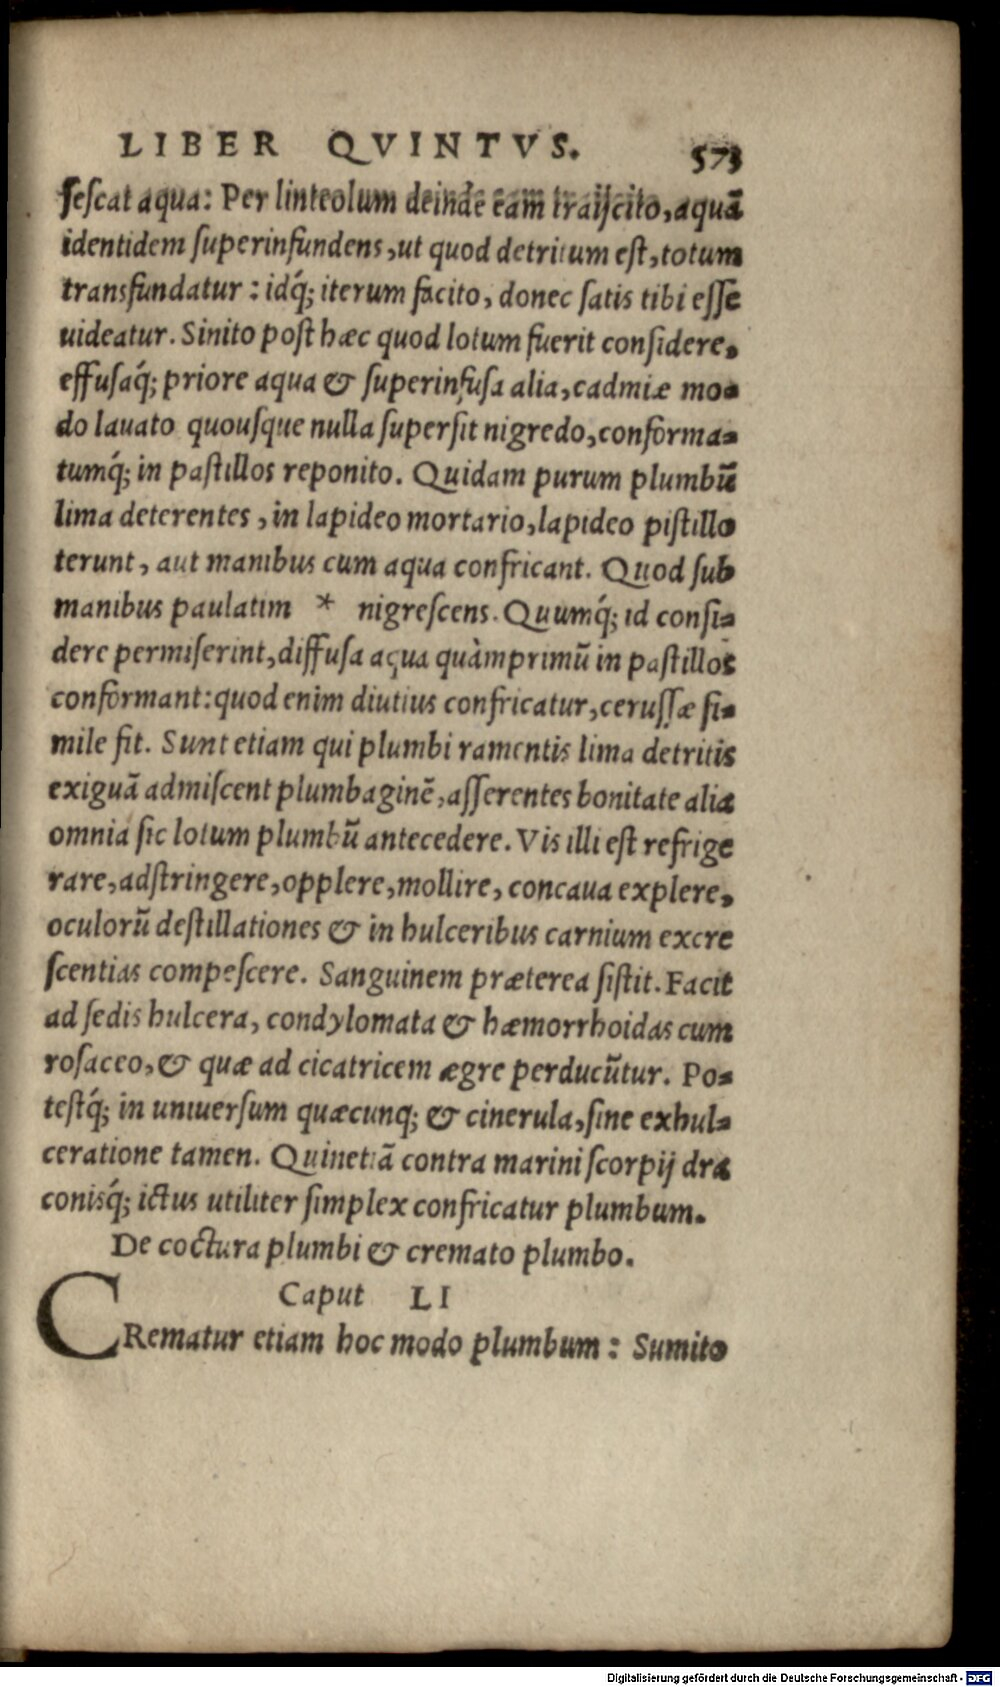 LIBER QVINTVS. 573
ſeſcat aqua: Per linteolum deinde eam traijcito, aquã
identidem ſuperinfundens, ut quod detritum eſt, totum
transfundatur: idq́; iterum facito, donec ſatis tibi eſſe
uideatur. Sinito poſt hæc quod lotum fuerit conſidere,
effuſaq́; priore aqua & ſuperinfuſa alia, cadmiæ mo-
do lauato quouſque nulla ſuperſit nigredo, conforma-
tumq́; in paſtillos reponito. Quidam purum plumbũ
lima deterentes, in lapideo mortario, lapideo piſtillo
terunt, aut manibus cum aqua confricant. Quod ſub
manibus paulatim * nigreſcens. Quumq́; id conſi-
dere permiſerint, diffuſa aqua quàmprimũ in paſtillos
conformant: quod enim diutius confricatur, ceruſſæ ſi-
mile fit. Sunt etiam qui plumbi ramentis lima detritis
exiguã admiſcent plumbaginẽ, aſſerentes bonitate alia
omnia ſic lotum plumbũ antecedere. Vis illi eſt refrige
rare, adſtringere, opplere, mollire, concaua explere,
oculorũ deſtillationes & in hulceribus carnium excre
ſcentias compeſcere. Sanguinem præterea ſiſtit. Facit
ad ſedis hulcera, condylomata & hæmorrhoidas cum
roſaceo, & quæ ad cicatricem ægre perducũtur. Po-
teſtq́; in uniuerſum quæcunq; & cinerula, ſine exhul-
ceratione tamen. Quinetiã contra marini ſcorpij dra
conisq́; ictus utiliter ſimplex confricatur plumbum.
De coctura plumbi & cremato plumbo.
Caput LI
CRematur etiam hoc modo plumbum: Sumito
Digitalisierung gefördert durch die Deutsche Forschungsgemeinschaft - DFG